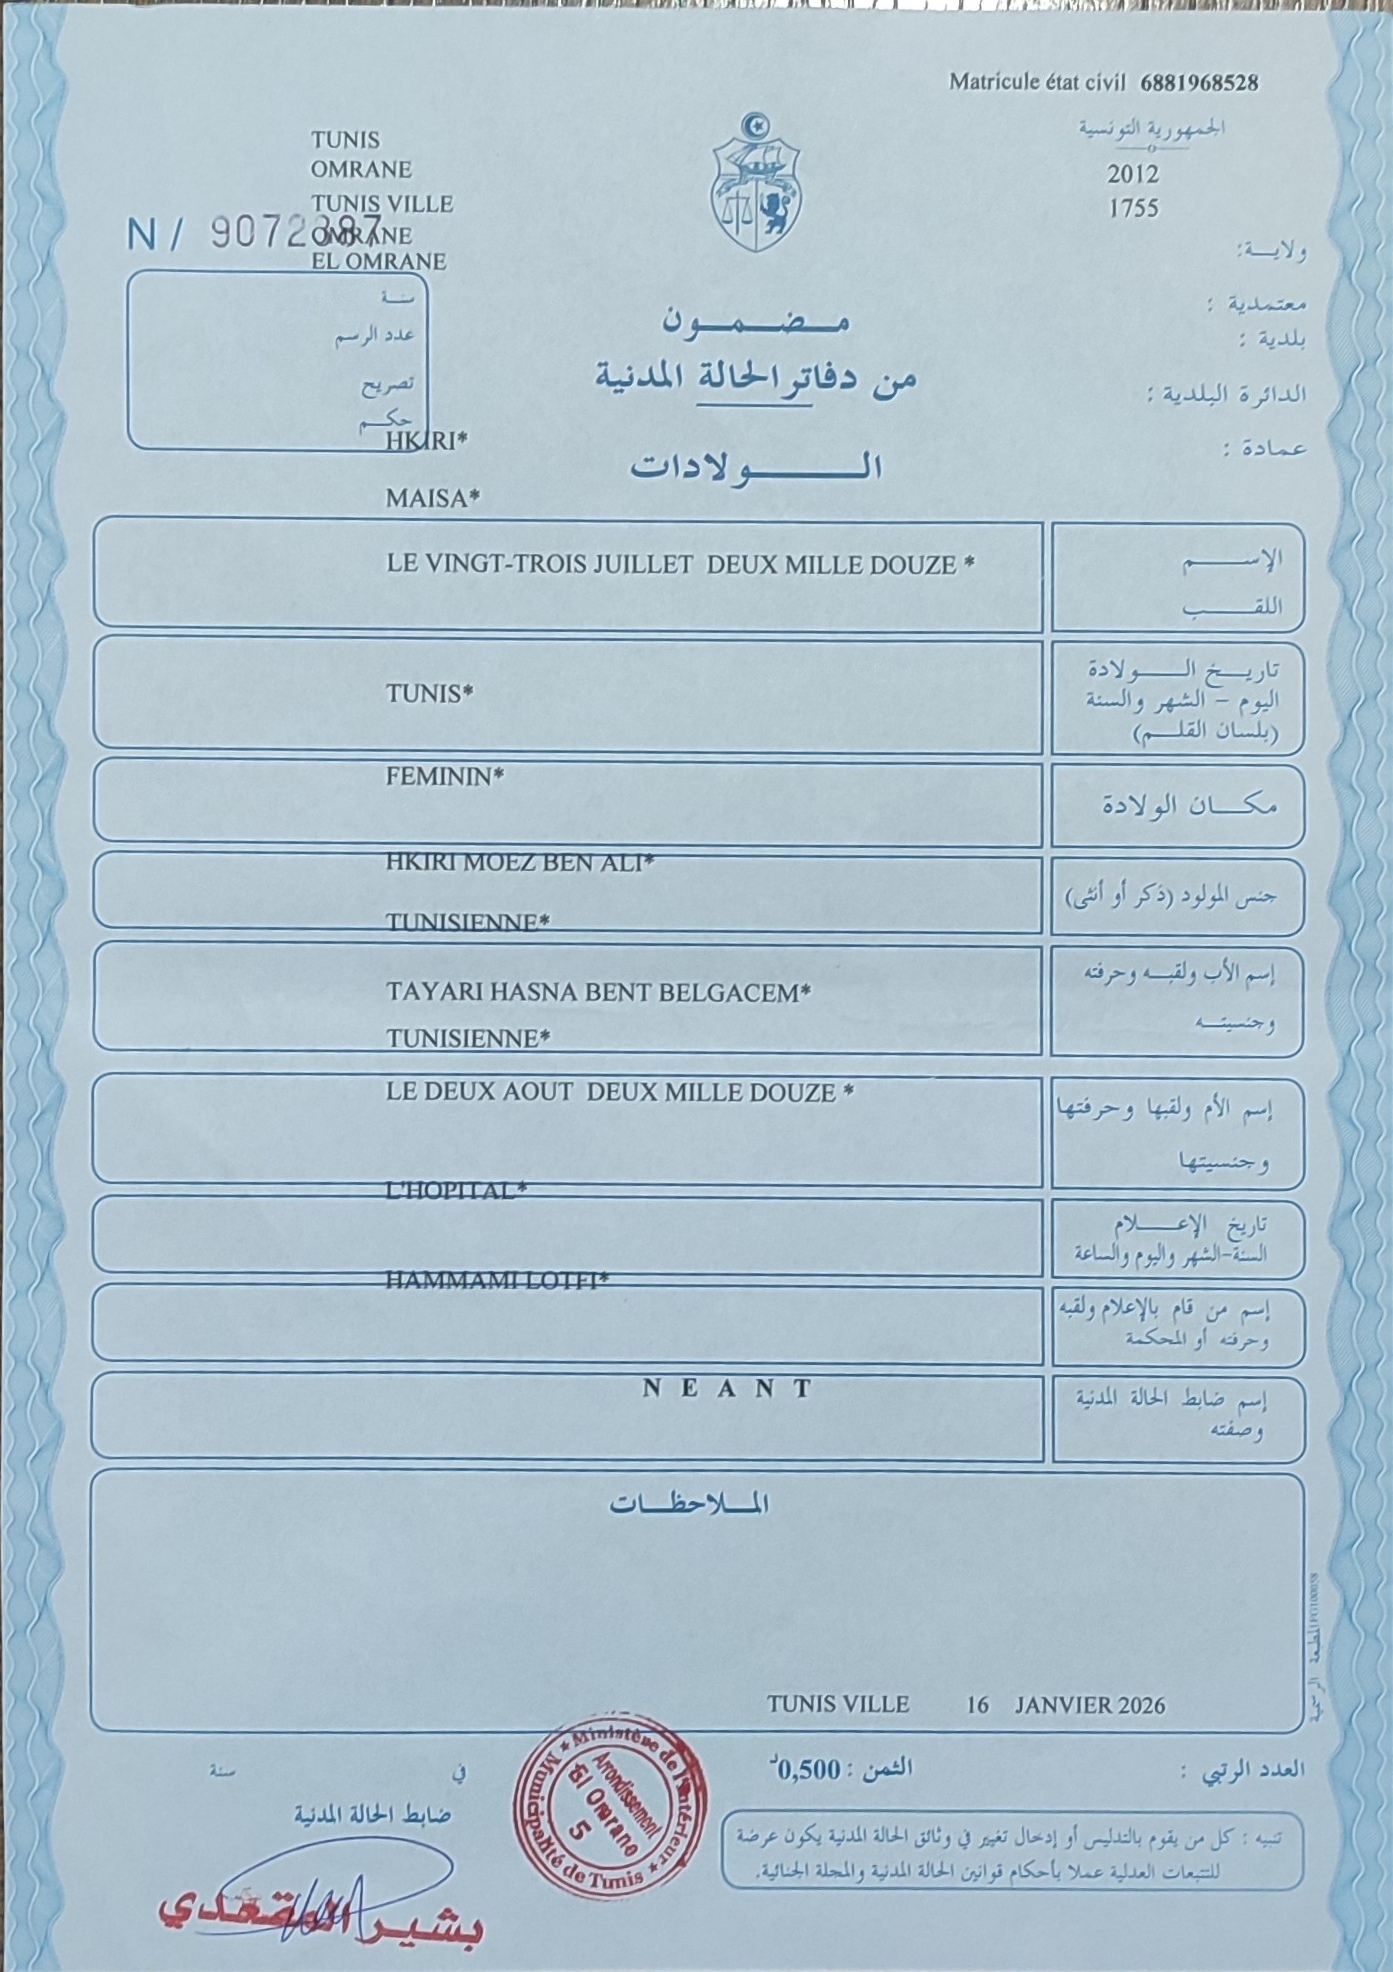 Matricule état civil 6881968528
الجمهورية التونسية
TUNIS
2012
OMRANE
1755
TUNIS VILLE
N/ 9072387
OMRANE
EL OMRANE
ولايـــة:
معتمدية :
بلدية :
الدائرة البلدية :
عمادة :
سنــة
عدد الرسم
تصريح
حكـــم
مـضـمـون
من دفاتر الحالة المدنية
الـــولادات
HKIRI*
MAISA*
الإســـــم
اللقـــــب
LE VINGT-TROIS JUILLET DEUX MILLE DOUZE *
تاريـــخ الـــــولادة
اليوم – الشهر والسنة
(بلسان القلـــم)
TUNIS*
مكـــان الولادة
FEMININ*
جنس المولود (ذكر أو أنثى)
HKIRI MOEZ BEN ALI*
TUNISIENNE*
إسم الأب ولقبـــه وحرفته
وجنسيتـــه
TAYARI HASNA BENT BELGACEM*
TUNISIENNE*
إسم الأم ولقبها وحرفتها
وجنسيتها
LE DEUX AOUT DEUX MILLE DOUZE *
تاريخ الإعـــــلام
السنة-الشهر واليوم والساعة
L'HOPITAL*
إسم من قام بالإعلام ولقبه
وحرفته أو المحكمة
HAMMAMI LOTFI*
إسم ضابط الحالة المدنية
وصفته
N E A N T
الملاحظـــات
TUNIS VILLE 16 JANVIER 2026
العدد الرتبي :
الثمن : 0,500د
في سنة
ضابط الحالة المدنية
تنبيه : كل من يقوم بالتدليس أو إدخال تغيير في وثائق الحالة المدنية يكون عرضة
للتتبعات العدلية عملا بأحكام قوانين الحالة المدنية والمجلة الجنائية.
Ministère de l'Intérieur
Municipalité de Tunis
Arrondissement
El Omrane
5
بشير
المطبعة الرسمية